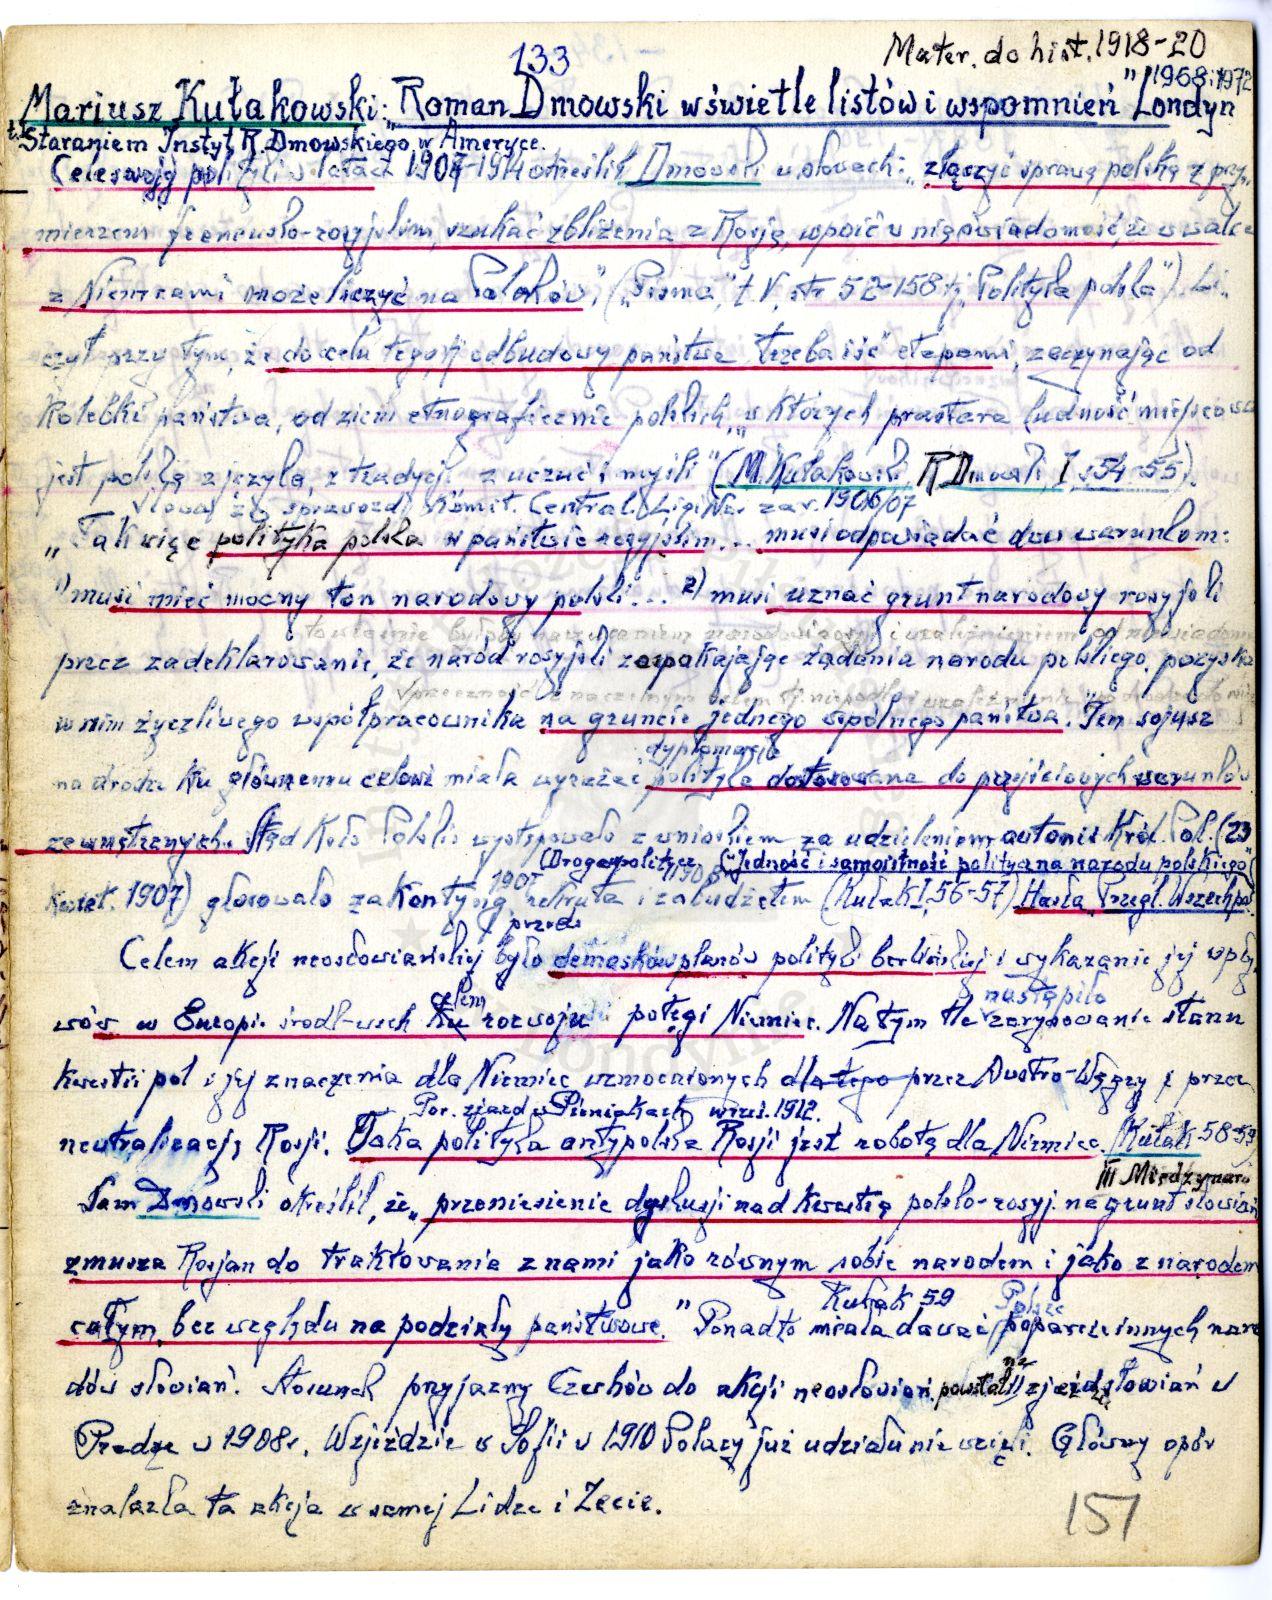 133
Mater. do hist. 1918-20
Mariusz Kułakowski: "Roman Dmowski w świetle listów i wspomnień" Londyn 1968 i 1972
t. I Staraniem Instyt. R. Dmowskiego w Ameryce.
Celе swojej polityki w latach 1907-1914 określił Dmowski w słowach: "złączyć sprawę polską z przy-
mierzem francusko-rosyjskim, szukać zbliżenia z Rosją, wpoić w nią świadomość, że w walce
z Niemcami może liczyć na Polaków", ("Pisma", t V, str 52-158 tj "Polityka polska"). Li-
czył przy tym, że do celu tego, tj odbudowy państwa trzeba iść etapami, zaczynając od
kolebki państwa, od ziem etnograficznie polskich, "w których prastara ludność miejscowa
jest polską z języka, z tradycji z uczuć i myśli" (M. Kułakowski, R Dmowski, I s 54-55).
Słowa ze sprawozd. Komit. Central. Ligi Nar za r. 1906/07
"Tak więc polityka polska w państwie rosyjskim... musi odpowiadać dwu warunkom:
1) musi mieć mocny ton narodowy polski... 2) musi uznać grunt narodowy rosyjski
przez zadeklarowanie, że naród rosyjski zaspakajając żądania narodu polskiego, pozyska
w nim życzliwego współpracownika na gruncie jednego wspólnego państwa." Ten sojusz
dyplomacja
na drodze ku głównemu celowi miała wyrażać polityka dostosowana do przejściowych warunków
zewnętrznych. Stąd Koło Polskie występowało z wnioskiem za udzieleniem autonii Król. Pol. (23
(Droga polityczn. 1908 "Jedność i samoistność polityczna narodu polskiego"
Kwiet. 1907) głosowało za kontyng. 1907 rekruta i za budżetem (Kułak I, 56-57) Hasła Przegl. Wszechpol.
Celem akcji neosłowiańskiej było przede demasków planów polityki berlińskiej i wykazanie jej wpły-
wów w Europie środk-wsch celem ku rozwoju potęgi Niemiec. Na tym tle nastąpiło zarysowanie stanu
kwestii pol i jej znaczenia dla Niemiec wzmocnionych dla tego przez Austro-Węgry i przez
Por. zjazd w Pieniakach wrześ. 1912.
neutralizację Rosji. Taka polityka antypolska Rosji jest robotą dla Niemiec. Kułak 58-59
III Międzynaro
Sam Dmowski określił, że "przeniesienie dyskusji nad kwestią polsko-rosyj. na grunt słowiań
zmusza Rosjan do traktowania z nami jako równym sobie narodem i jako z narodem
całym, bez względu na podziały państwowe." Kułak 59 Ponadto miała dawać Polsce poparcie innych naro
dów słowiań. Stosunek przyjazny Czechów do akcji neosłowiań. powstał na zjeździe słowiań w
Pradze w 1908 r. W zjeździe w Sofii w 1910 Polacy już udziału nie wzięli. Główny opór
znalazła ta akcja w samej Lidze i Zecie.
151